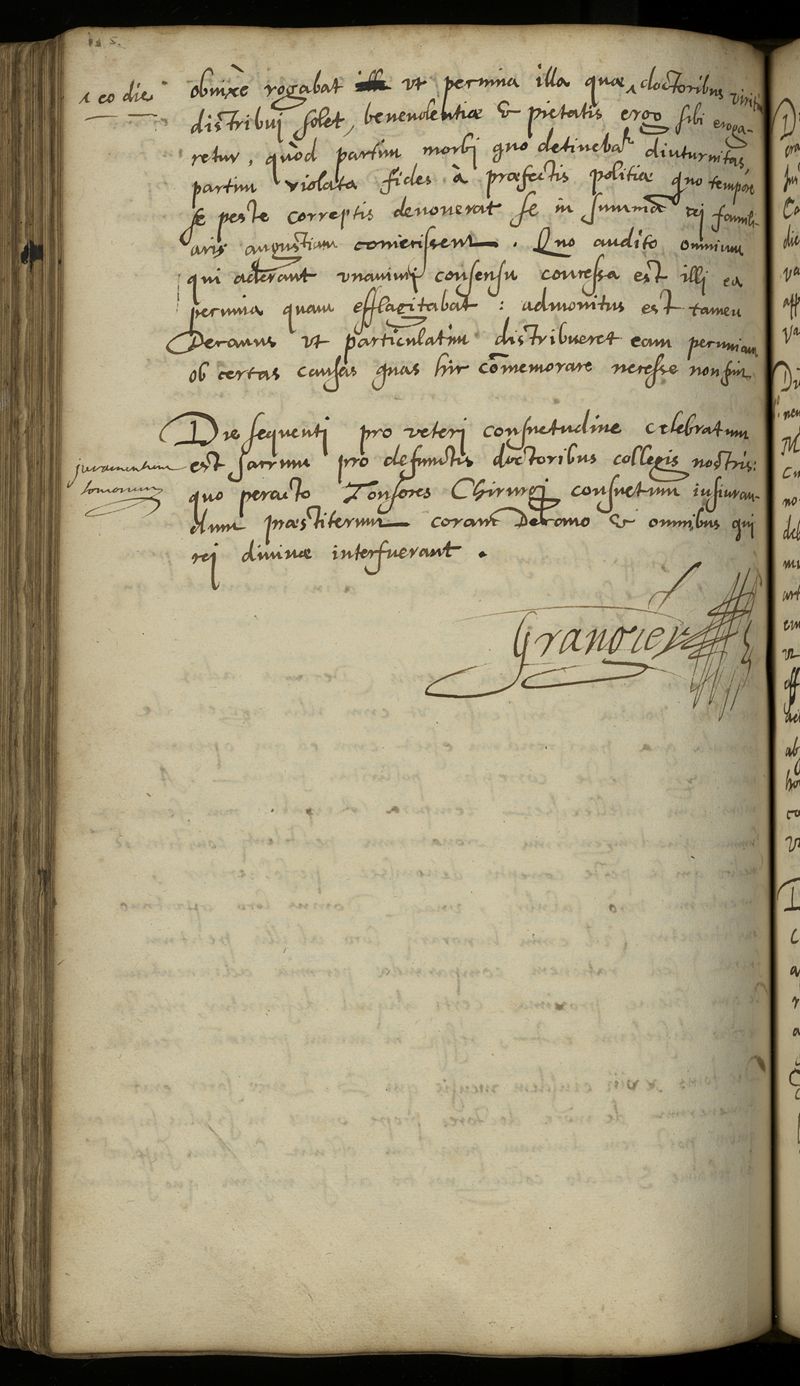 ^ eo die
obnixè rogabat ut pecunia illa quae ^ doctoribus viritim
distribui solet, benevolentiae & pietatis ergo sibi eroga-
retur, quòd partim morbi quo detinebatr diuturnitas,
partim violata fides à praefectis politiae quo tempore
se peste correptis devoverat se in summam rei famili-
aris angustiam coniecissent. Quo audito omnium
qui aderant unanimi consensu concessa est illi ea
pecunia quam efflagitabat : admonitus est tamen
Decanus ut particulatim distribueret eam pecuniam
ob certas causas quas hic commemorare necesse non fuit.
Die sequenti pro veteri consuetudine celebratum
est sacrum pro defunctis doctoribus collegis nostris:
iuramentum
tonsorum
quo peracto Tonsores Chirurgi consuetum iusiuran-
dum praestiterunt coram Decano & omnibus qui
rei divinae interfuerant.
Grangier